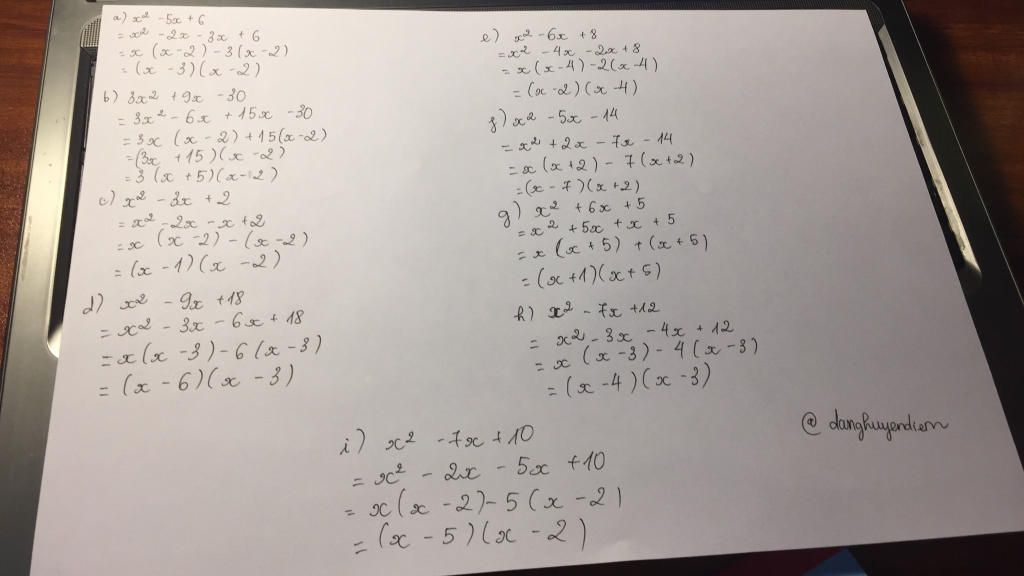 a) x² - 5x + 6
= x² - 2x - 3x + 6
= x (x - 2) - 3 (x - 2)
= (x - 3) (x - 2)
b) 3x² + 9x - 30
= 3x² - 6x + 15x - 30
= 3x (x - 2) + 15(x - 2)
= (3x + 15) (x - 2)
= 3 (x + 5) (x - 2)
c) x² - 3x + 2
= x² - 2x - x + 2
= x (x - 2) - (x - 2)
= (x - 1) (x - 2)
d) x² - 9x + 18
= x² - 3x - 6x + 18
= x (x - 3) - 6 (x - 3)
= (x - 6) (x - 3)
e) x² - 6x + 8
= x² - 4x - 2x + 8
= x (x - 4) - 2 (x - 4)
= (x - 2) (x - 4)
f) x² - 5x - 14
= x² + 2x - 7x - 14
= x (x + 2) - 7 (x + 2)
= (x - 7) (x + 2)
g) x² + 6x + 5
= x² + 5x + x + 5
= x (x + 5) + (x + 5)
= (x + 1) (x + 5)
h) x² - 7x + 12
= x² - 3x - 4x + 12
= x (x - 3) - 4 (x - 3)
= (x - 4) (x - 3)
@ danghuyendiem
i) x² - 7x + 10
= x² - 2x - 5x + 10
= x (x - 2) - 5 (x - 2)
= (x - 5) (x - 2)